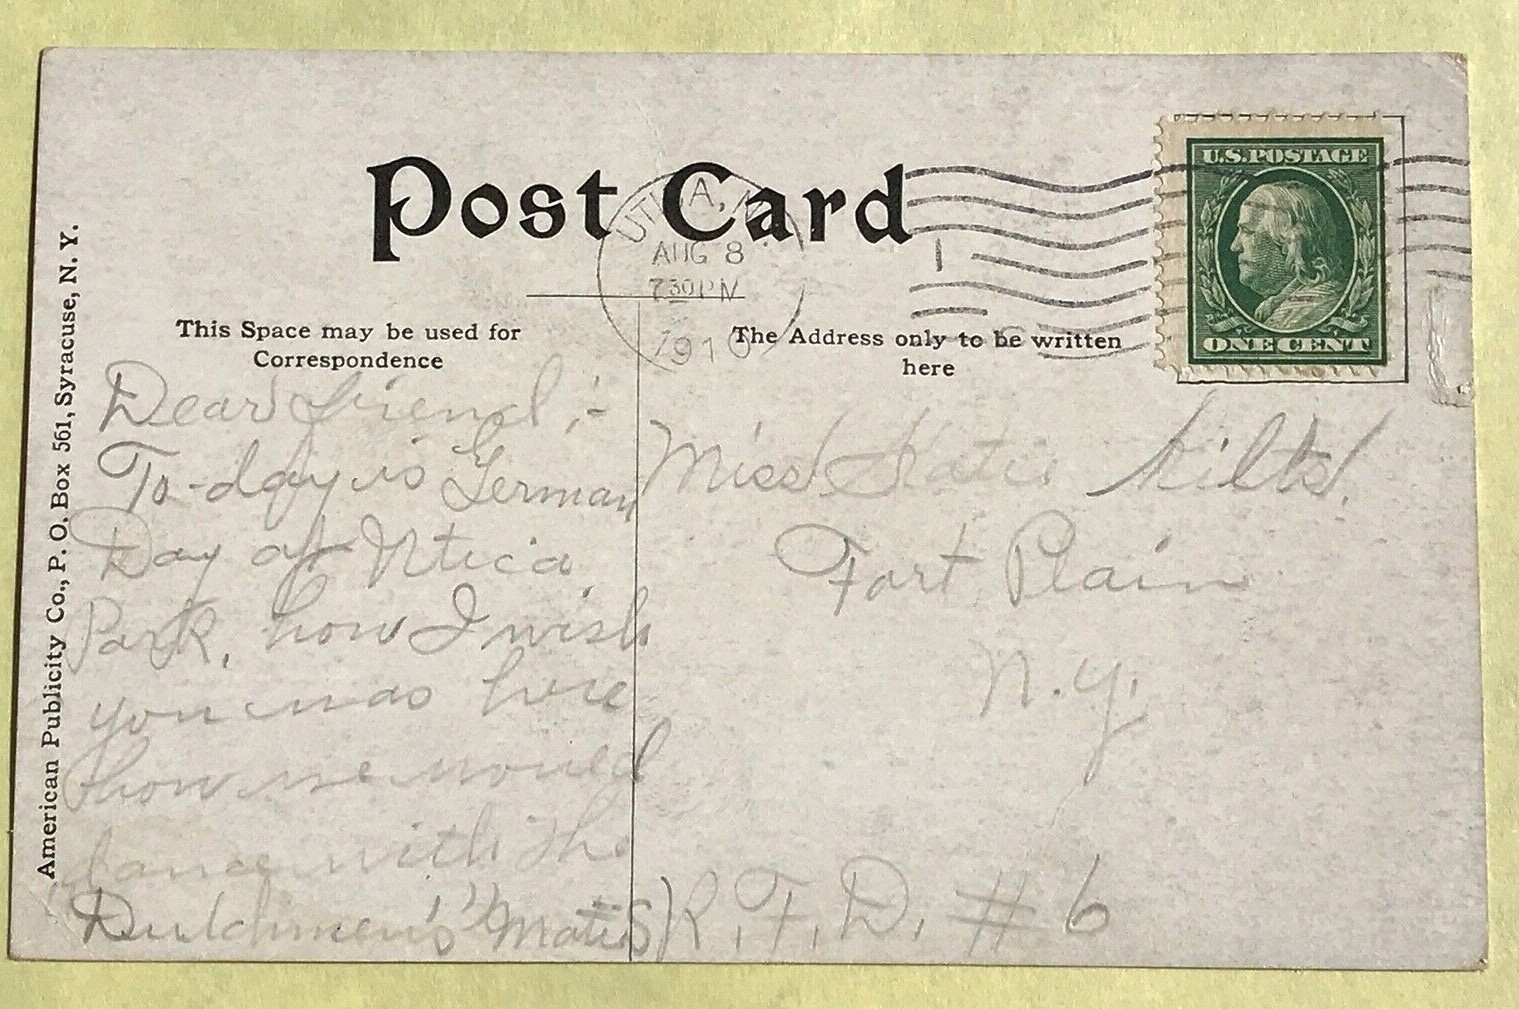 Post Card
UTICA, N.
AUG 8
7 30 PM
1910
U.S. POSTAGE
ONE CENT
American Publicity Co., P. O. Box 561, Syracuse, N. Y.
This Space may be used for
Correspondence
The Address only to be written
here
Dear friend :-
To-day is German
Day at Utica
Park, how I wish
you was here
how we would
dance with the
Dutchmen's"
Miss Katie Kilts.
Fort Plain
N.Y.
R.F.D. # 6